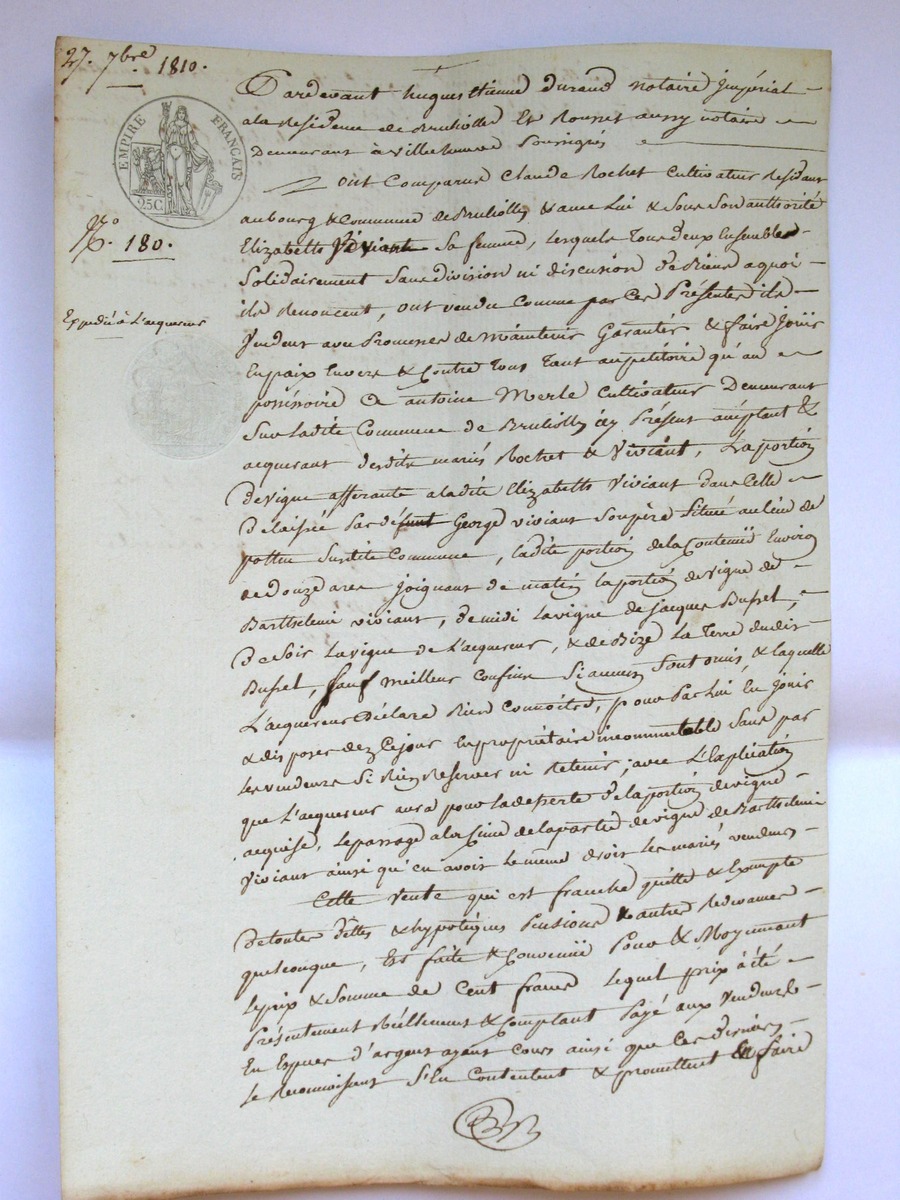 27. 7bre 1810.
EMPIRE FRANÇAIS
25C
No. 180.
Expedié à L'acquereur
Pardevant hugues Etienne durand notaire Jmpérial
ala Residence de Bruliolles Et Rounet aussy notaire
Demeurant à Ville Soussignés
Ont Comparus Claude Rochet Cultivateur Residant
au bourg & Commune de Bruliolles & avec Lui & Sous Son authorité
Elizabeth Viviant Sa femme, lesquels Tous deux Ensemble
Solidairement Sans division ni discusion de Biens a quoi
ils Renoncent, ont vendu Comme par Ces Présentes ils
Vendent avec Promesse de Maintenir Garantir & faire Jouir
En paix Envers & Contre Tous Tant au petitoire qu'au
possessoire a antoine Merle Cultivateur Demeurant
Sur Ladite Commune de Bruliolles icy Présent acceptant &
acquerant desdits mariés Rochet & Viviant, La portion
De vigne afferante a ladite Elizabeth Viviant dans Celle
Délaissée Par défunt George viviant Son père Située au Lieu de
potten Susdite Commune, ladite portion de la Contenüe Environ
de Douze ares joignant de matin la portion de vigne de
Barthelemi viviant, de midi La vigne de jacques Bussel,
De Soir La vigne de L'acquereur, & de Bize La Terre dudit
Bussel, Sauf meilleur confins Si aucuns Sont omis, & laquelle
L'acquereur Déclare Bien Connoitre, pour Par Lui En Jouir
& disposer dez Ce jour En propriétaire incommutable Sans par
Les vendeurs Si Rien Reserver ni Retenir; avec L'Explication
que L'acquereur aura pour la desserte de la portion de vigne
acquise, Le passage a la Cime de la partie de vigne de Barthelemi
Viviant ainsi qu'en avoit Le même droit Les mariés vendeurs
Cette Vente qui est franche quitte & Exempte
De toutes Dettes & hypotèques Pensions & autres Redevances
quelconque, Est faite & Convenüe Pour & Moyennant
Le prix & Somme de Cent francs Lequel prix à été
Présentement Réellement & Comptant Payé aux Vendeurs
En Espèces d'argent ayant Cours ainsi que Ces derniers
Le Reconnoissent S'En Contentent & promettent En faire